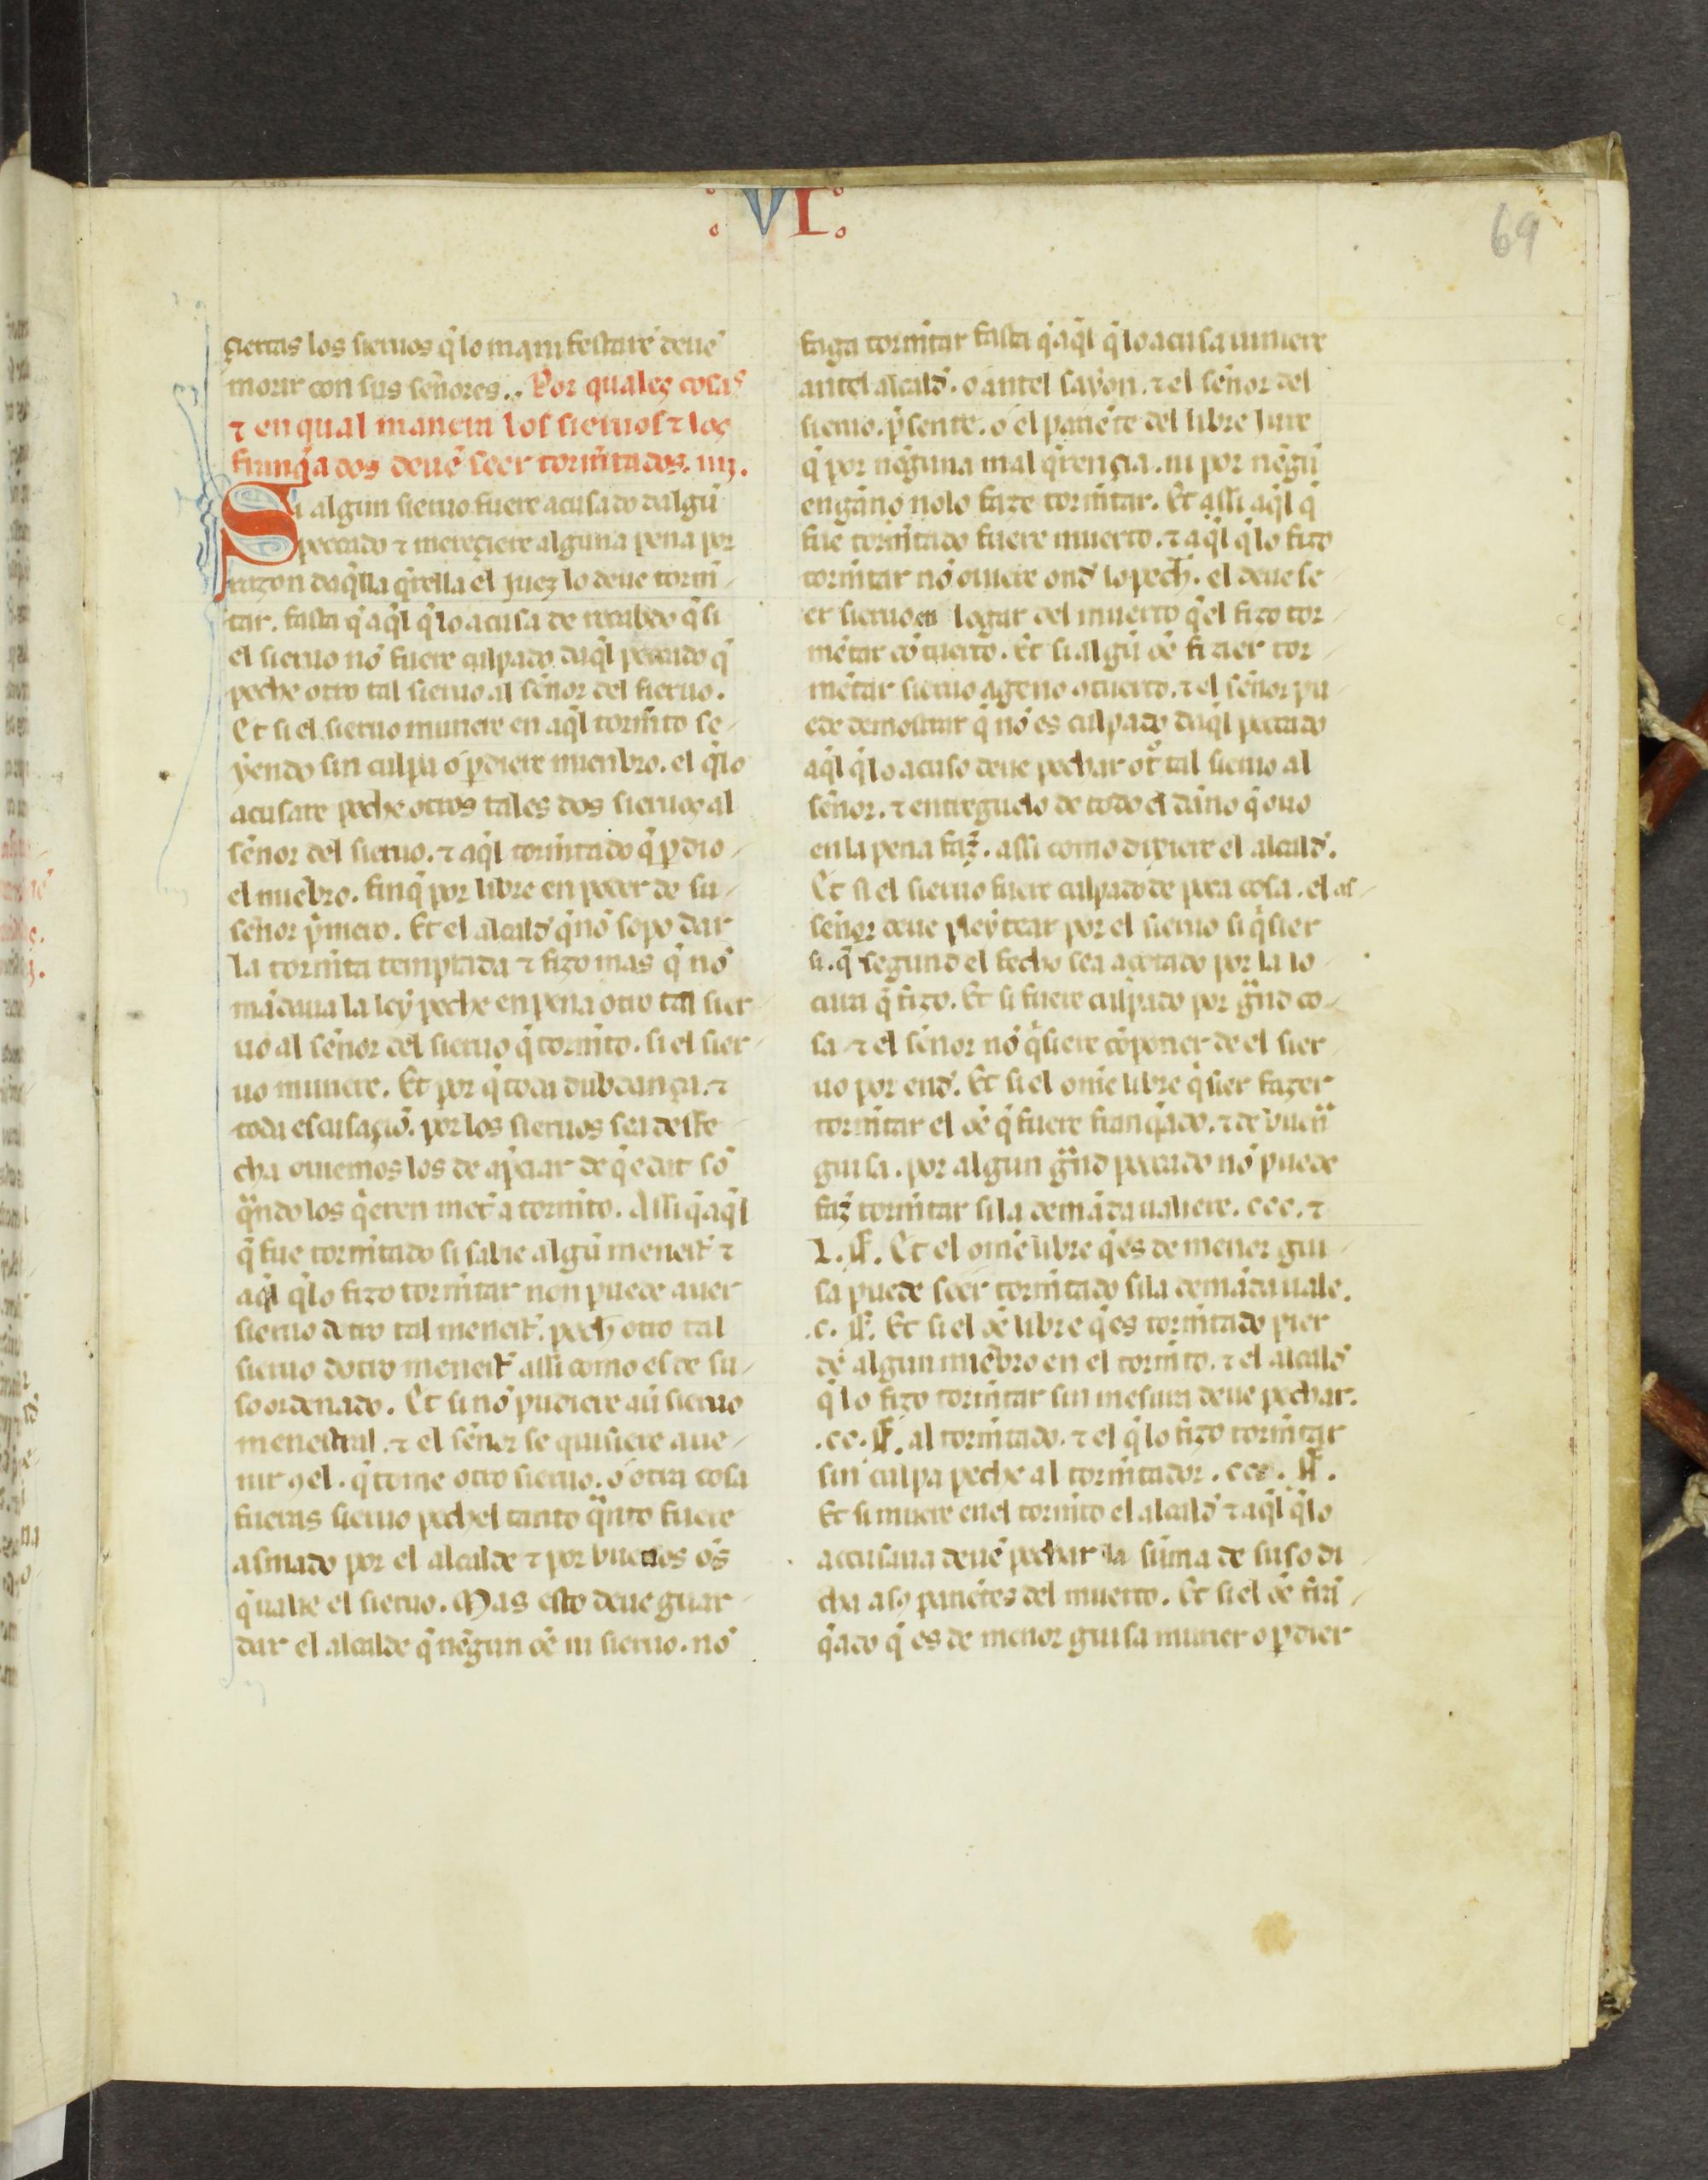 : VI :
69
çiertas los sieruos q̃ lo manifestarẽ deuẽ
morir con sus señores.. Por quales cosas
⁊ en qual manera los sieruos ⁊ los
franq̃ados deuẽ seer tormẽtados. iiij.
Si algun sieruo fuere acusado dalgũ
peccado ⁊ mereçiere alguna pena por
razon daq̃lla q̃rella el juez lo deue tormẽ
tar. fasta q̃ aq̃l q̃ lo acusa de recabdo q̃ si
el sieruo nõ fuere culpado daq̃l peccado q̃
peche otro tal sieruo al señor del sieruo.
Et si el sieruo muriere en aq̃l tormẽto se
yendo sin culpa o ꝑdiere mienbro. el q̃ lo
acusare peche otros tales dos sieruos al
señor del sieruo. ⁊ aq̃l tormẽtado q̃ ꝑdio
el miẽbro. finq̃ por libre en poder de su
señor p̃mero. Et el alcald̃ q̃ nõ sopo dar
la tormẽta temprada ⁊ fizo mas q̃ nõ
mãdaua la ley peche en pena otro tal sier
uo al señor del sieruo q̃ tormẽto. si el sier
uo muriere. Et por q̃ toda dubdança. ⁊
toda escusaçiõ. por los sieruos sea desfe
cha ouiemos los de apẽar de q̃ edat sõ
q̃ndo los q̃eren met̃ a tormẽto. Assi q̃ aq̃l
q̃ fue tormẽtado si sabie algũ menest̃ ⁊
aq̃l q̃ lo fizo tormẽtar non puede auer
sieruo dotro tal menest̃. pech̃ otro tal
sieruo dotro menest̃ assi como es de su
so ordenado. Et si nõ pudiere aũ sieruo
menestral. ⁊ el señor se quisiere aue
nir ꝯ el. q̃ tome otro sieruo. o otra cosa
fueras sieruo pechel tanto q̃nto fuere
asmado por el alcalde ⁊ por buenos oẽs
q̃ ualie el sieruo. Mas esto deue guar
dar el alcalde q̃ nẽgun oẽ ni sieruo. nõ
faga tormẽtar fasta q̃ aq̃l q̃ lo acusa uiniere
antel alcald̃. o antel sayon. ⁊ el señor del
sieruo. p̃sente. o el pariẽte del libre jure
q̃ por nẽguna mal q̃rençia. ni por nẽgũ
engãno nolo faze tormẽtar. Et assi aq̃l q̃
fue tormẽtado fuere muerto. ⁊ aq̃l q̃ lo fizo
tormẽtar nõ ouiere ond̃ lo pech̃. el deue se
er sieruo en logar del muerto q̃ el fizo tor
mẽtar cõ tuerto. Et si algũ oẽ fizier tor
mẽtar sieruo ageno a tuerto. ⁊ el señor pu
ede demostrar q̃ nõ es culpado daq̃l peccado
aq̃l q̃ lo acuso deue pechar ot̃ tal sieruo al
señor. ⁊ entreguelo de todo el dãno q̃ ouo
en la pena faz̃. assi como dixiere el alcald̃.
Et si el sieruo fuere culpado de poca cosa. el
señor deue pleytear por el sieruo si q̃sier
si. q̃ segund el fecho sea açotado por la lo
cura q̃ fizo. Et si fuere culpado por g̃nd co
sa ⁊ el señor nõ q̃siere cõponer de el sier
uo por end̃. Et si el omẽ libre q̃sier fazer
tormẽtar el oẽ q̃ fuere franq̃ado. ⁊ de buẽa
guisa. por algun g̃nd peccado nõ puede
faz̃ tormẽtar si la demãda ualiere. ccc. ⁊
l. ss̃. Et el omẽ libre q̃ es de menor gui
sa puede seer tormẽtado si la demãda uale.
.c. ss̃. Et si el oẽ libre q̃ es tormẽtado pier
de algun miẽbro en el tormẽto. ⁊ el alcald̃
q̃ lo fizo tormẽtar sin mesura deue pechar.
.cc. ss̃. al tormẽtado. ⁊ el q̃ lo fizo tormẽtar
sin culpa peche al tormẽtador. ccc. ss̃.
Et si muere en el tormẽto el alcald̃ ⁊ aq̃l q̃ lo
accusaua deuẽ pechar la sũma de suso di
cha a sꝯ pariẽtes del muerto. Et si el oẽ frã
q̃ado q̃ es de menor guisa murier o ꝑdier